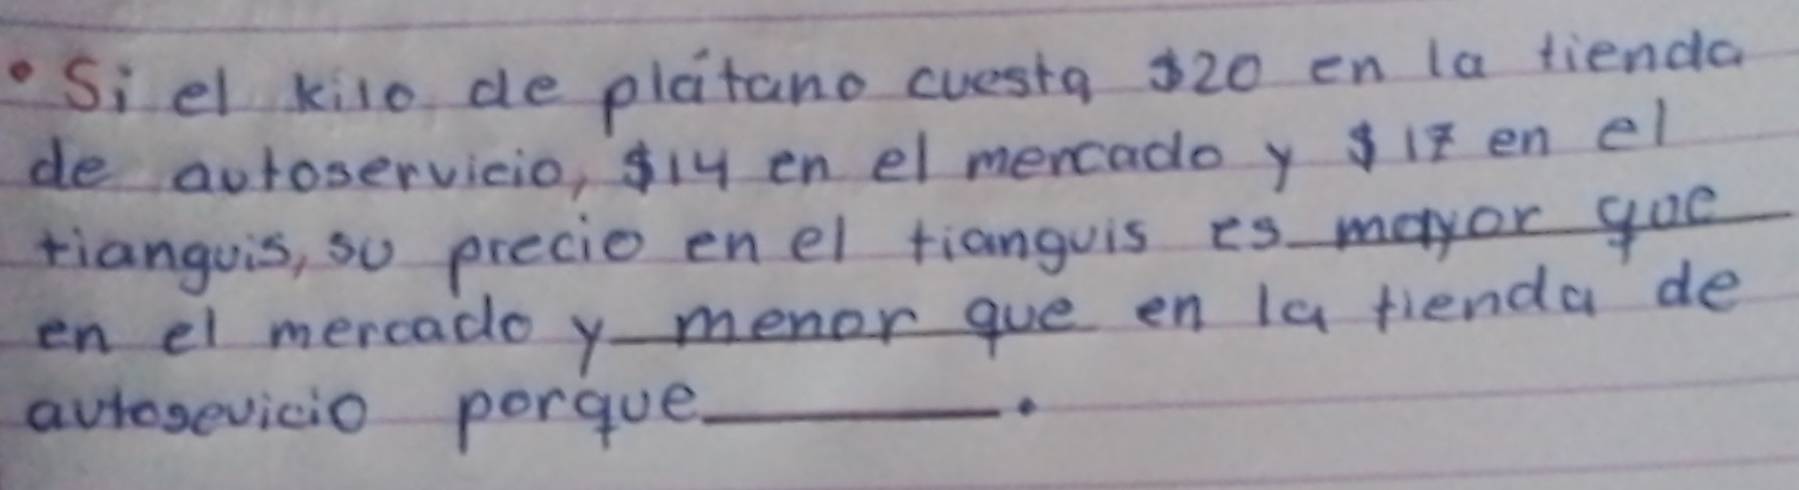 • Si el kilo de plátano cuesta $20 en la tienda
de autoservicio, $14 en el mercado y $17 en el
tianguis, su precio en el tianguis es mayor que
en el mercado y menor que en la tienda de
autosevicio porque________.